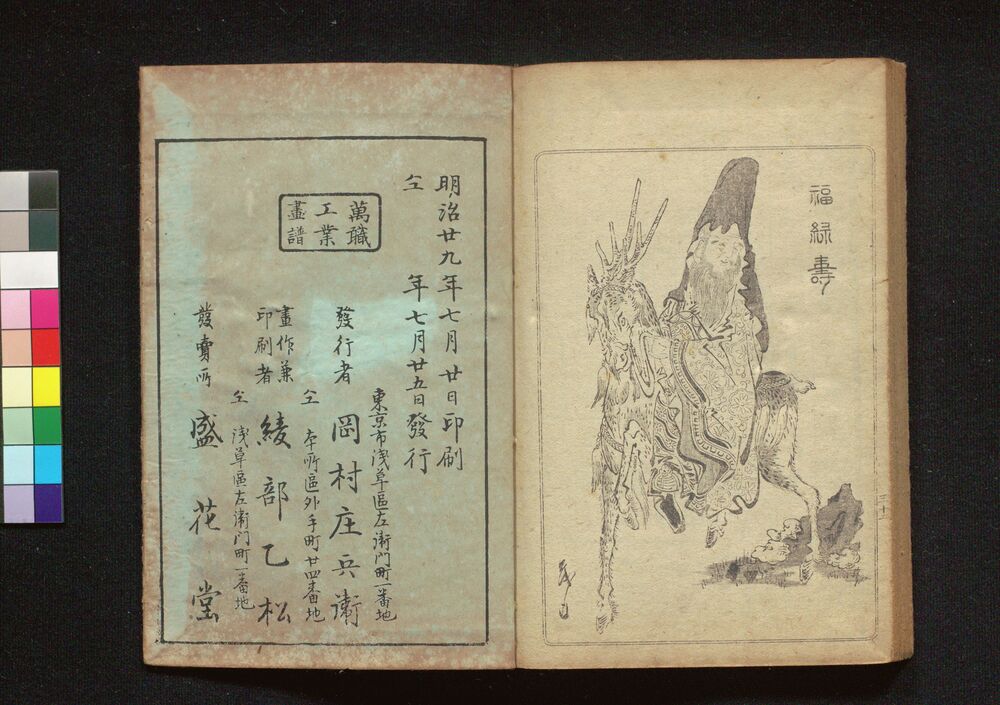 福禄壽
萬職
工業
畫譜
明治廿九年七月廿日印刷
仝 年七月廿五日發行
東京市浅草區左衛門町一番地
發行者 岡村庄兵衛
仝 本所區外手町廿四番地
畫作兼
印刷者 綾部乙松
仝 浅草區左衛門町一番地
發賣所 盛花堂